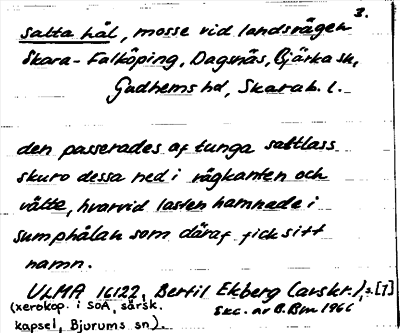 3.
salta hål, mosse vid landsvägen
Skara-Falköping, Dagsnäs, Bjärka sn,
Gudhems hd, Skarab. l.
den passerades af tunga saltlass
skuro dessa ned i vägkanten och
välte, hvarvid lasten hamnade i
sumphålan som däraf fick sitt
namn.
ULMA 16122, Bertil Ekberg (avskr.), + [7]
(xerokop. i SOA, särsk.
exc. av B. Bm 1966
kapsel, Bjurums sn)